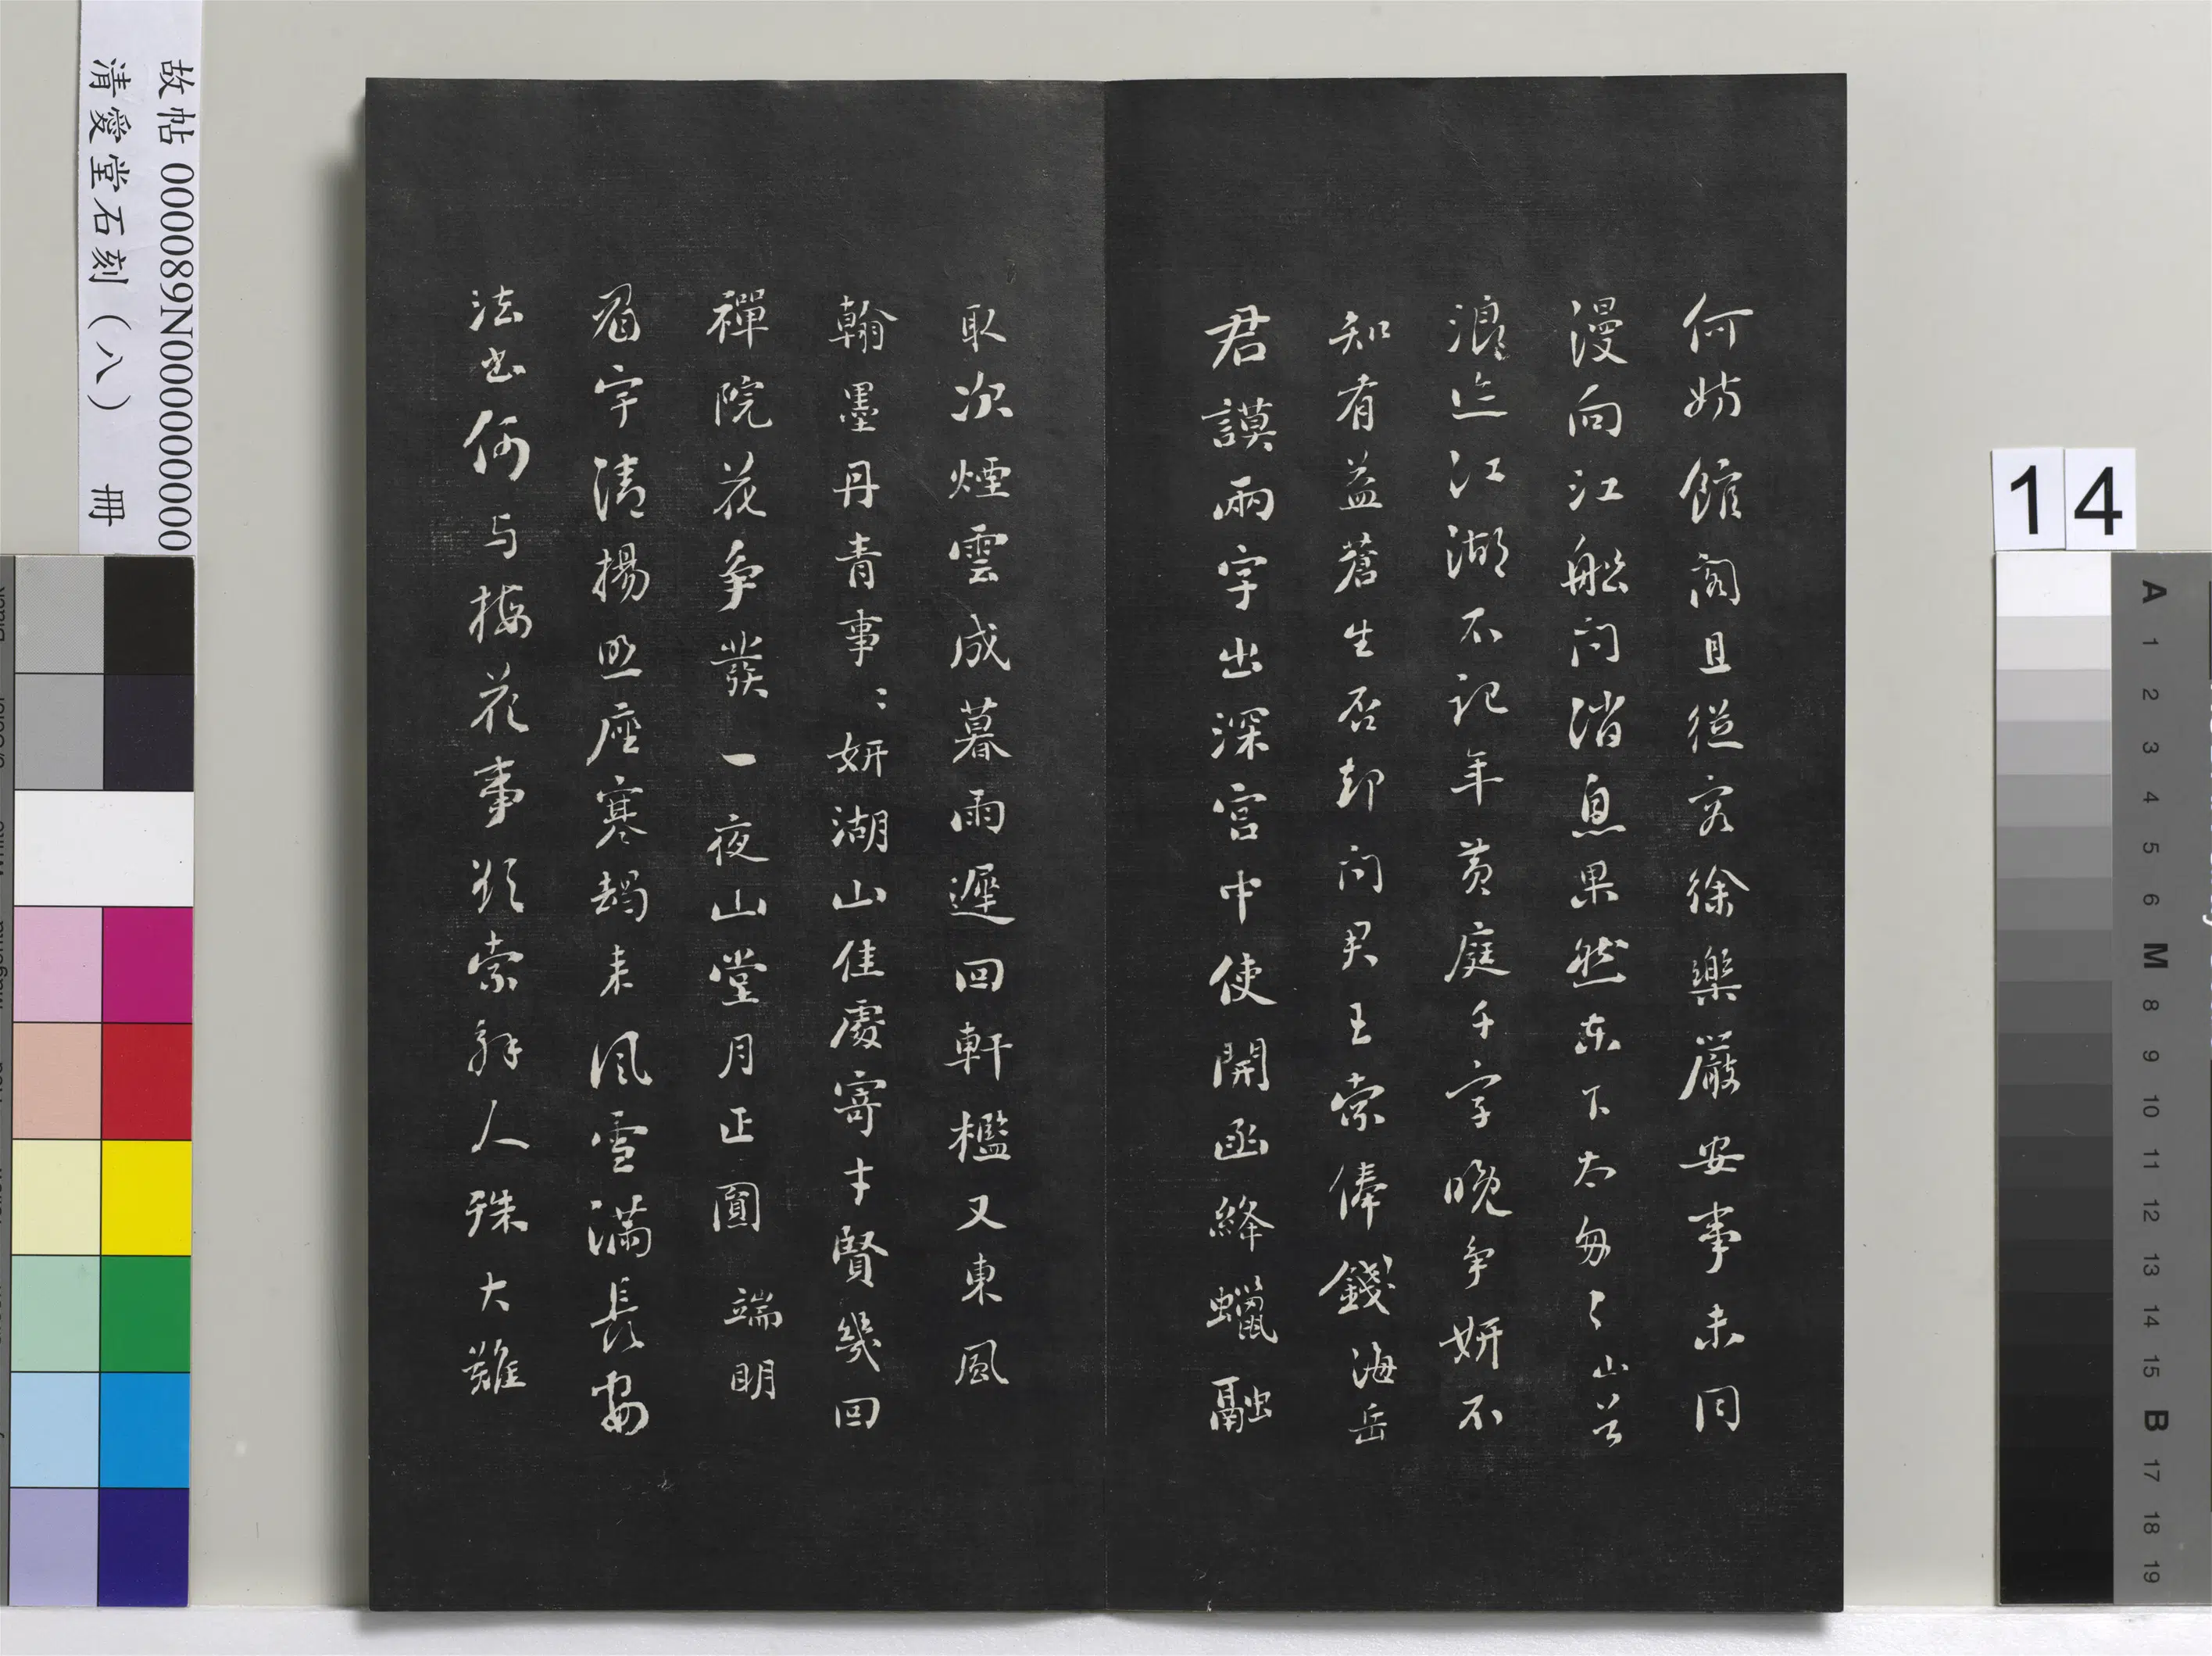 何妨館閣且從容徐樂嚴安事未同
漫向江船問消息果然東下太匆〻山谷
浪迹江湖不記年黃庭千字晚爭妍不
知有益蒼生否却問君王索俸錢海岳
君謨兩字出深宮中使開函絳蠟融
取次煙雲成暮雨遲回軒檻又東風
翰墨丹青事〻妍湖山佳處寄才賢幾回
禪院花爭發一夜山堂月正圓端明
眉宇清揚照座寒朅來風雪滿長安
法書何與梅花事欲索解人殊大難
故帖 000089N000000000
清愛堂石刻（八） 冊
14
A
1
2
3
4
5
6
M
8
9
10
11
12
13
14
15
B
17
18
19